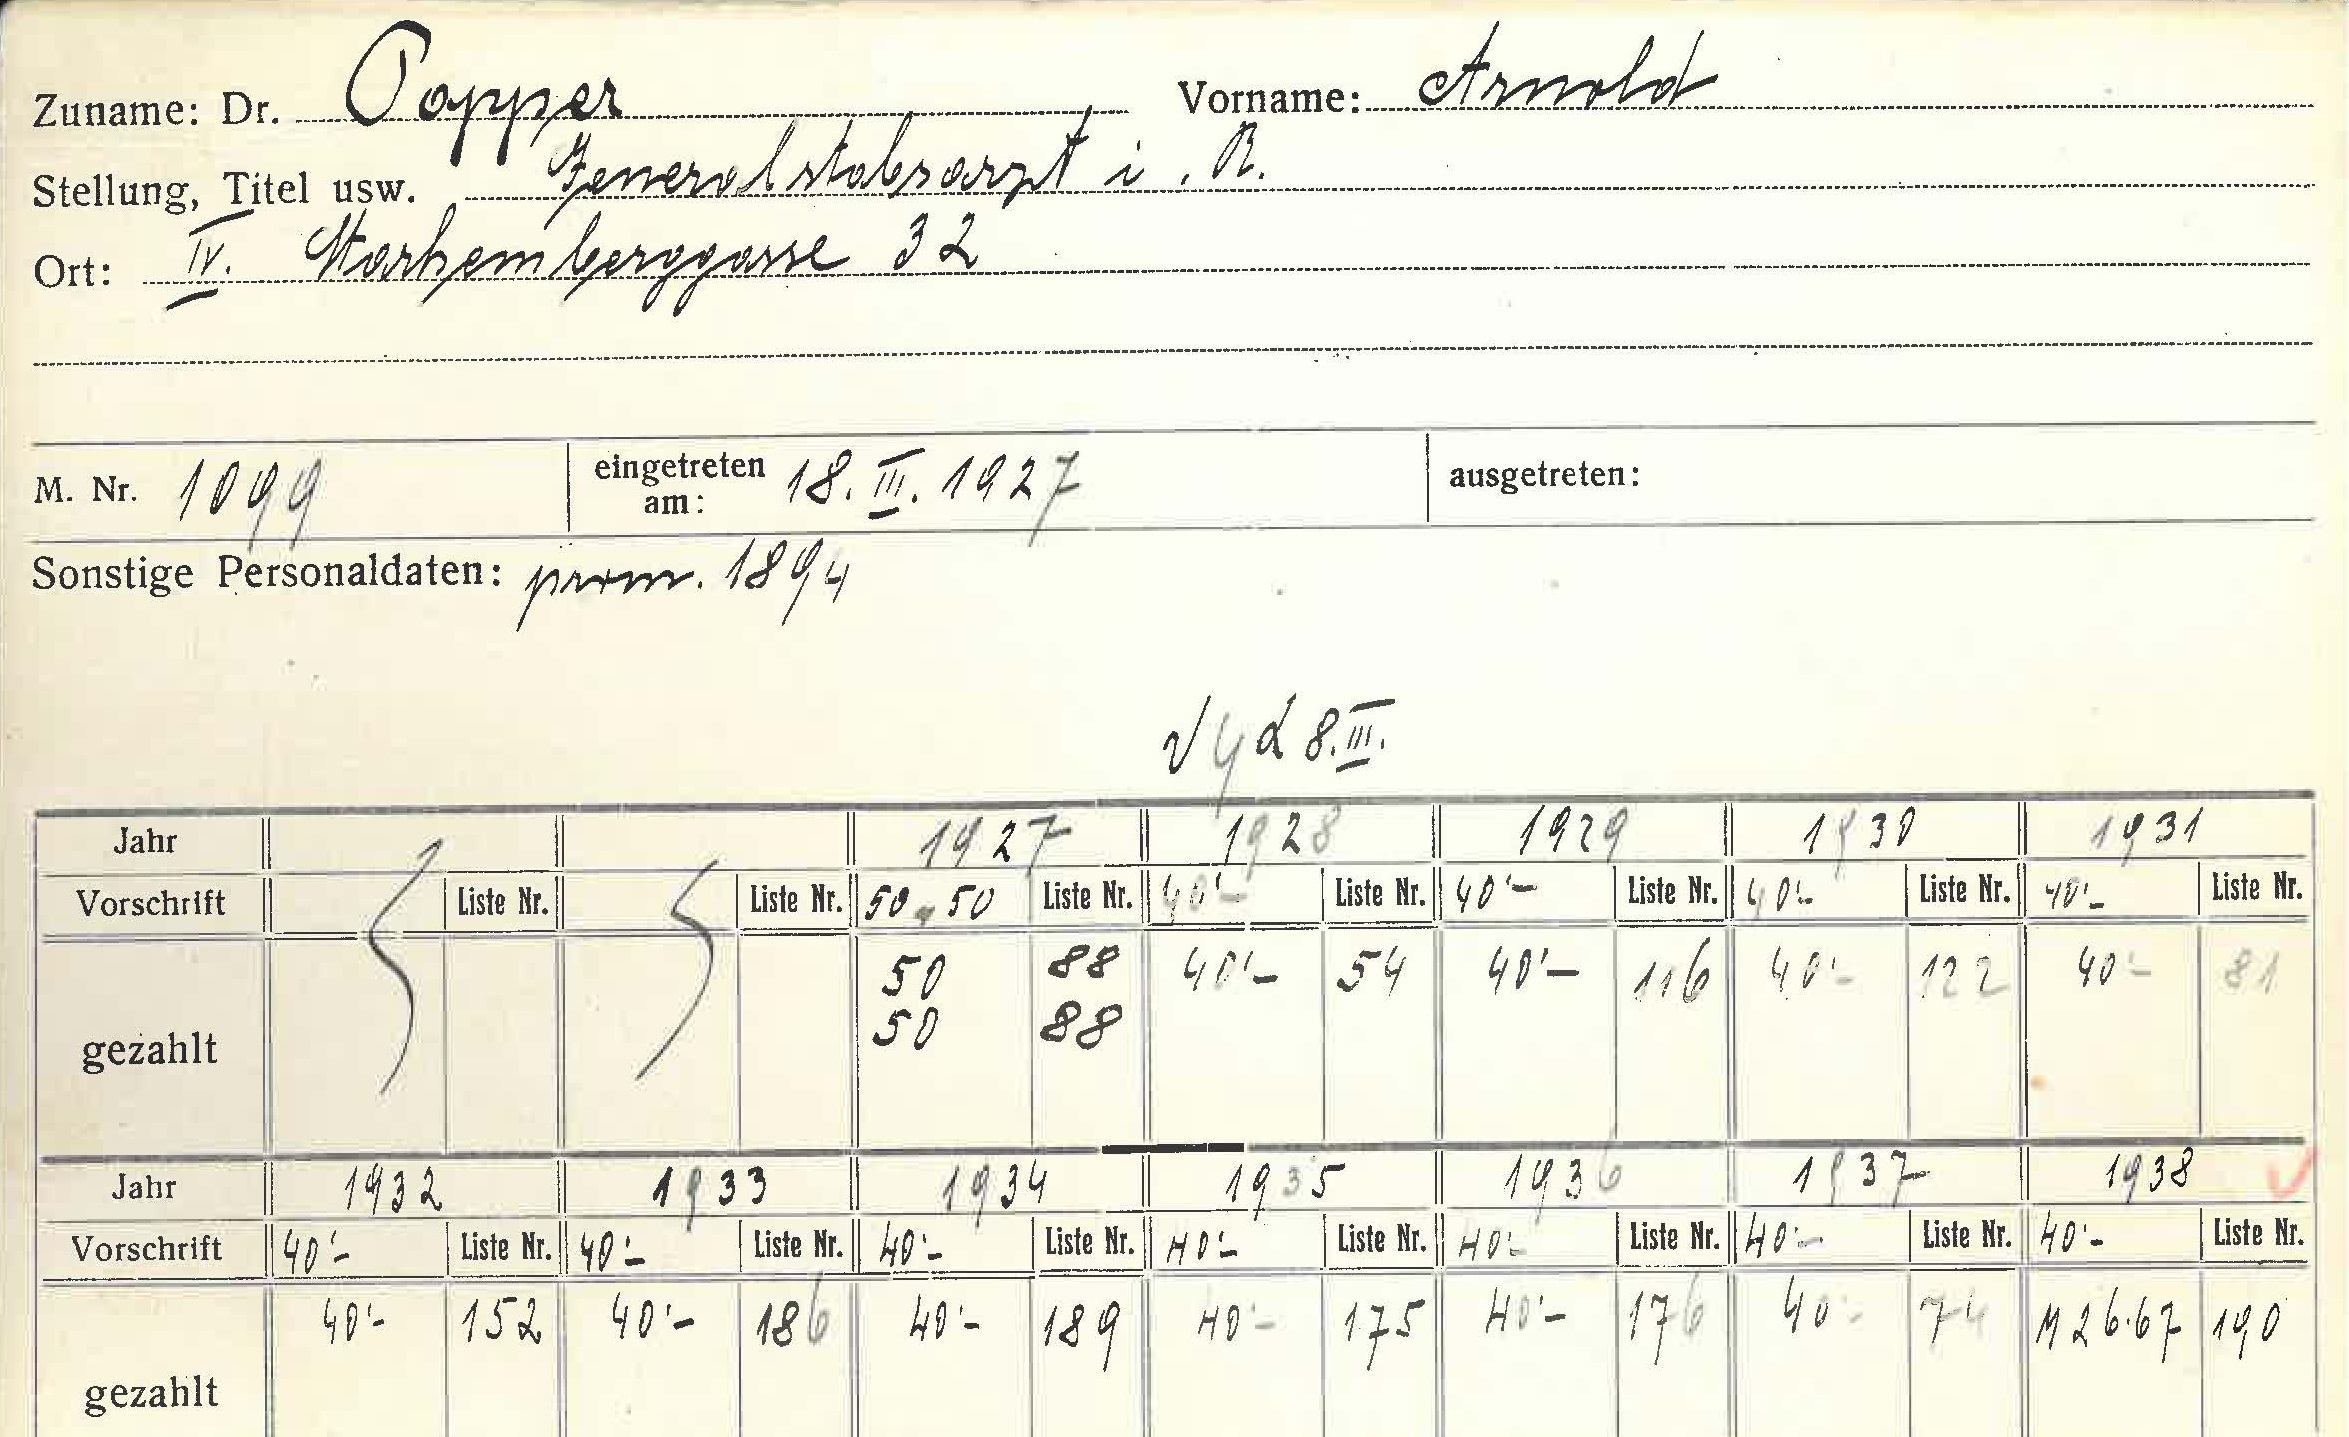 Zuname: Dr. Popper Vorname: Arnold
Stellung, Titel usw. Generalstabsarzt i. R.
Ort: IV. Starhemberggasse 32
M. Nr. 1099 eingetreten am: 18. III. 1927 ausgetreten:
Sonstige Personaldaten: prom. 1894
8. III.
Jahr 1927 1928 1929 1930 1931
Vorschrift Liste Nr. Liste Nr. 50 50 Liste Nr. 40'- Liste Nr. 40'- Liste Nr. 40'- Liste Nr. 40'- Liste Nr.
gezahlt 50 88 40'- 54 40'- 116 40'- 122 40'- 81
50 88
Jahr 1932 1933 1934 1935 1936 1937 1938
Vorschrift 40'- Liste Nr. 40'- Liste Nr. 40'- Liste Nr. 40'- Liste Nr. 40'- Liste Nr. 40'- Liste Nr. 40'- Liste Nr.
gezahlt 40'- 152 40'- 186 40'- 189 40'- 175 40'- 176 40'- 74 M 26.67 190